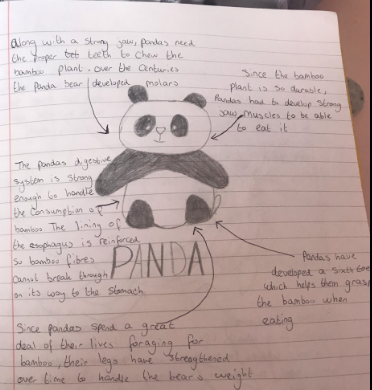 along with a strong jaw, pandas need
the proper teeth to chew the
bamboo plant. over the centuries
the panda bear developed molars
Since the bamboo
plant is so durable,
Pandas had to develop strong
jaw muscles to be able
to eat it
The pandas digestive
system is strong
enough to handle
the consumption of
bamboo. The lining of
the esophagus is reinforced
so bamboo fibres
cannot break through
on its way to the stomach.
PANDA
Pandas have
developed a sixth toe
which helps them grasp
the bamboo when
eating
Since pandas spend a great
deal of their lives foraging for
bamboo, their legs have strengthened
over time to handle the bear's weight